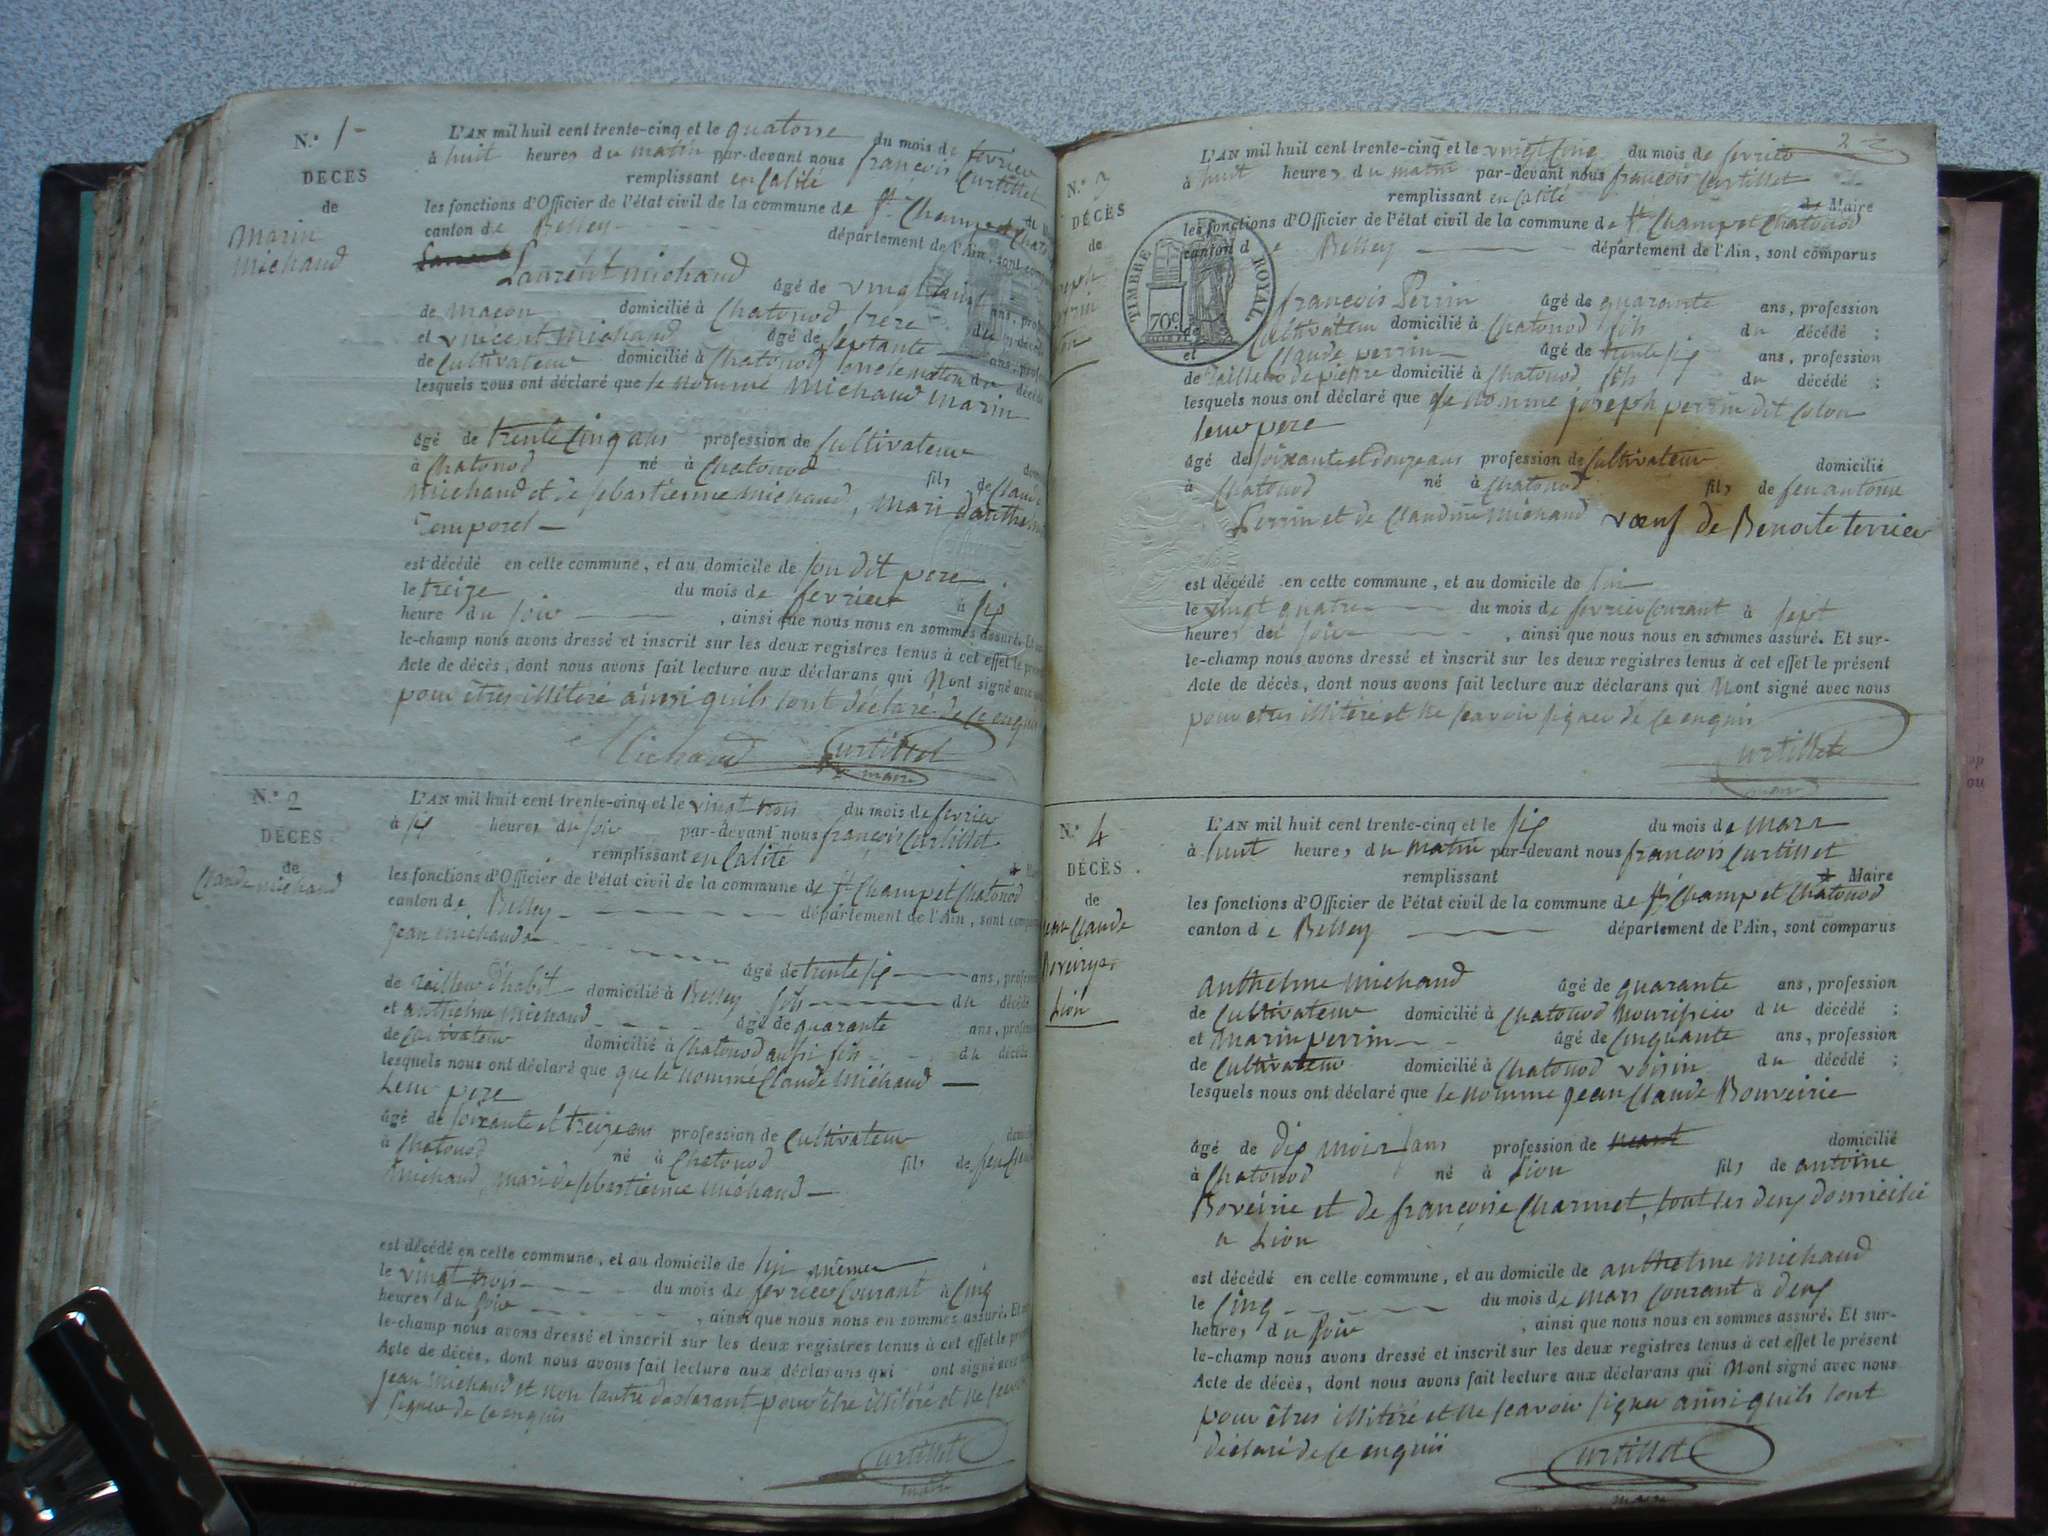 N.º 1
DÉCÈS
de
Marin
michaud
L'AN mil huit cent trente-cinq et le quatorse du mois de fevrier
à huit heures du matin par-devant nous francois Curtillet
remplissant en Calité
les fonctions d'Officier de l'état civil de la commune de St. Champ et Chat
canton de Belley département de l'Ain, sont comp
Laurent michaud âgé de vingt huit ans, prof
de maçon domicilié à Chatonod frere du décéd
et vincent Michaud âgé de septante ans, prof
de Cultivateur domicilié à Chatonod oncle du décéd
lesquels nous ont déclaré que le nommé Michaud Marin
âgé de trente Cinq ans profession de Cultivateur dom
à Chatonod né à Chatonod fils de Claude
michaud et de sebastienne michaud, mari d'anthelme
Temporel
est décédé en cette commune, et au domicile de son dit pere
le treize du mois de fevrier à six
heure du soir , ainsi que nous nous en sommes assuré. Et
le-champ nous avons dressé et inscrit sur les deux registres tenus à cet effet le pré
Acte de décès, dont nous avons fait lecture aux déclarans qui Nont signé avec
pour êtres illiteré ainsi quils lont déclaré de ce enquis
Michaud Curtillet
maire
N.º 2
DÉCÈS
de
Claude michaud
L'AN mil huit cent trente-cinq et le vingt trois du mois de fevrier
à six heures du soir par-devant nous françois Curtillet
remplissant en Calité
les fonctions d'Officier de l'état civil de la commune de St Champ et Chatonod
canton de Belley département de l'Ain, sont compar
jean michaud âgé de trente six ans, profess
de Tailleur d'habit domicilié à Belley fils du décéd
et anthelme michaud âgé de quarante ans, profes
de Cultivateur domicilié à Chatonod aussi fils du décéd
lesquels nous ont déclaré que que le nommé Claude Michaud
Leur pere
âgé de soixante et treize ans profession de Cultivateur domi
à Chatonod né à Chatonod fils de feu
michaud, mari de sebastienne michaud
est décédé en cette commune, et au domicile de lui même
le vingt trois du mois de fevrier Courant à Cinq
heures du soir , ainsi que nous nous en sommes assuré. Et
le-champ nous avons dressé et inscrit sur les deux registres tenus à cet effet le pré
Acte de décès, dont nous avons fait lecture aux déclarans qui ont signé avec
jean michaud et non lautre déclarant pour être illitéré et ne scavoir
signer de ce enquis
Curtillet
maire
2
N.º 3
DÉCÈS
de
TIMBRE ROYAL.
70 c.
L'AN mil huit cent trente-cinq et le vingt Cinq du mois de fevrier
à huit heures du matin par-devant nous françois Curtillet
remplissant en Calité de Maire
les fonctions d'Officier de l'état civil de la commune de St Champ et Chatonod
canton de Belley département de l'Ain, sont comparus
françois Perrin âgé de quarante ans, profession
Cultivateur domicilié à Chatonod fils du décédé ;
et Claude perrin âgé de trente six ans, profession
de Tailleur de pierre domicilié à Chatonod fils du décédé ;
lesquels nous ont déclaré que le nommé joseph perrin dit Colon
leur pere
âgé de soixante et douze ans profession de Cultivateur domicilié
à Chatonod né à Chatonod fils de feu antoine
Perrin et de Claudine Michaud vœuf de Benoite terrier
est décédé en cette commune, et au domicile de lui
le vingt quatre du mois de fevrier Courant à sept
heures du soir , ainsi que nous nous en sommes assuré. Et sur-
le-champ nous avons dressé et inscrit sur les deux registres tenus à cet effet le présent
Acte de décès, dont nous avons fait lecture aux déclarans qui Nont signé avec nous
pour etres illiteré et ne scavoir signer de ce enquis
Curtillet
maire
N.º 4
DÉCÈS
de
jean Claude
Lion
L'AN mil huit cent trente-cinq et le six du mois de mars
à huit heures du matin par-devant nous françois Curtillet
remplissant Maire
les fonctions d'Officier de l'état civil de la commune de St Champ et Chatonod
canton de Belley département de l'Ain, sont comparus
anthelme michaud âgé de quarante ans, profession
de Cultivateur domicilié à Chatonod Nourisier du décédé ;
et Marin perrin âgé de Cinquante ans, profession
de Cultivateur domicilié à Chatonod voisin du décédé ;
lesquels nous ont déclaré que le nommé jean Claude Bouveirie
âgé de dix mois sans profession de neant domicilié
à Chatonod né à Lion fils de antoine
Bovéirie et de françoise Charmet, tout les deux domicilié
a Lion
est décédé en cette commune, et au domicile de anthelme michaud
le Cinq du mois de mars Courant à deux
heures du soir , ainsi que nous nous en sommes assuré. Et sur-
le-champ nous avons dressé et inscrit sur les deux registres tenus à cet effet le présent
Acte de décès, dont nous avons fait lecture aux déclarans qui Nont signé avec nous
pour êtres illitéré et ne scavoir signer ainsi quils lont
déclaré de ce enquis
Curtillet
maire